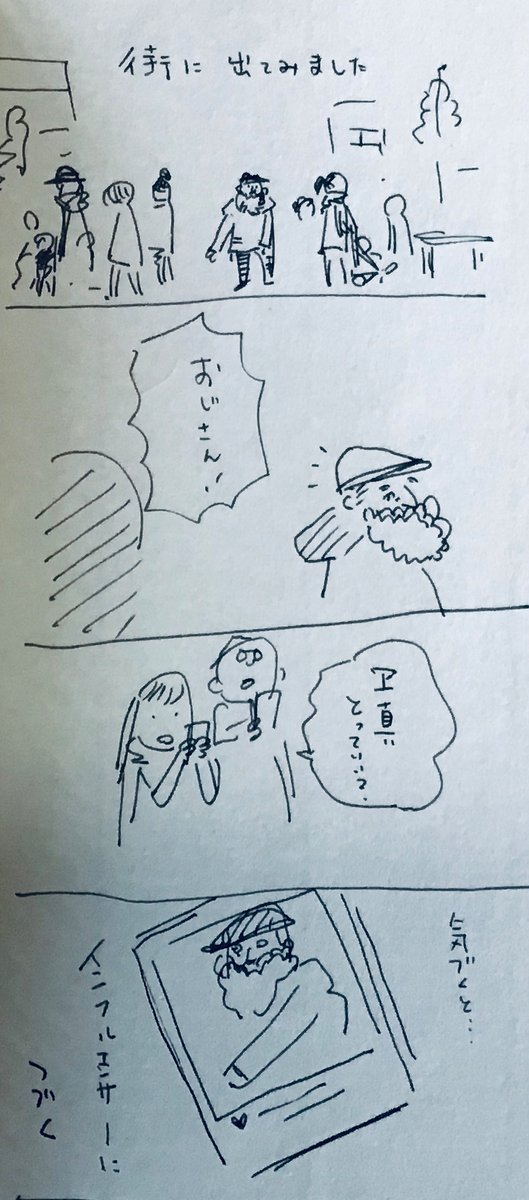 街に 出てみました
おじさん!!
写真
とっていい?
気づくと…
インフルエンサーに
つづく